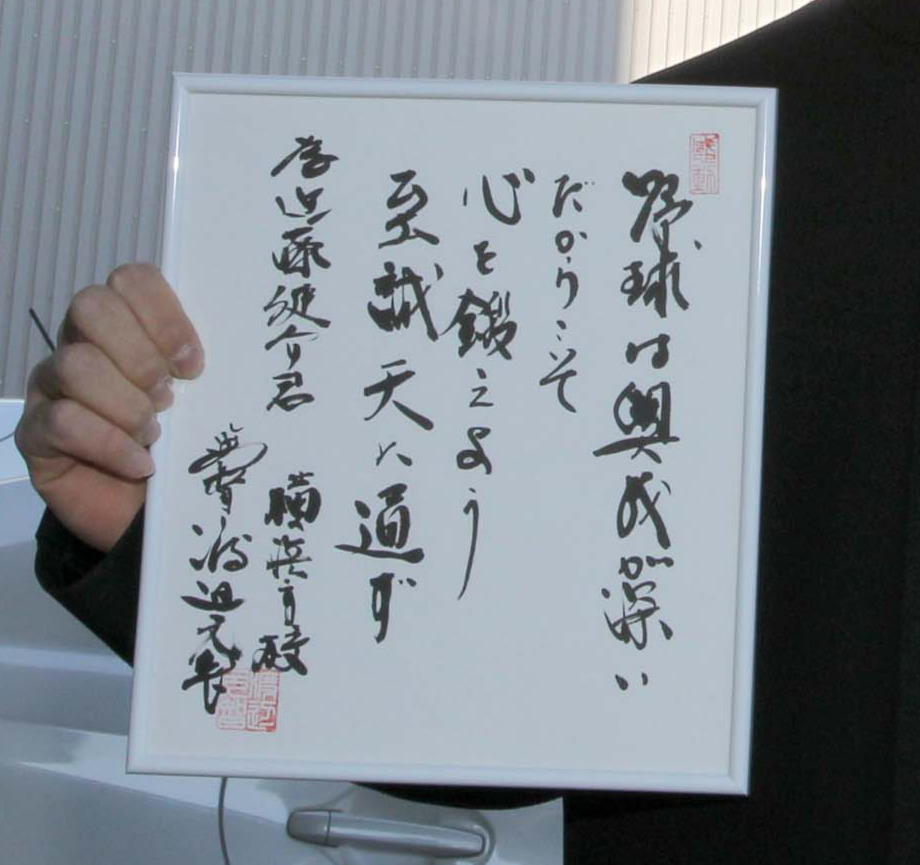 感動
野球は奥が深い
だからこそ
心を鍛えよう
至誠天に通ず
為近藤健介君
横浜高校
監督渡辺元智